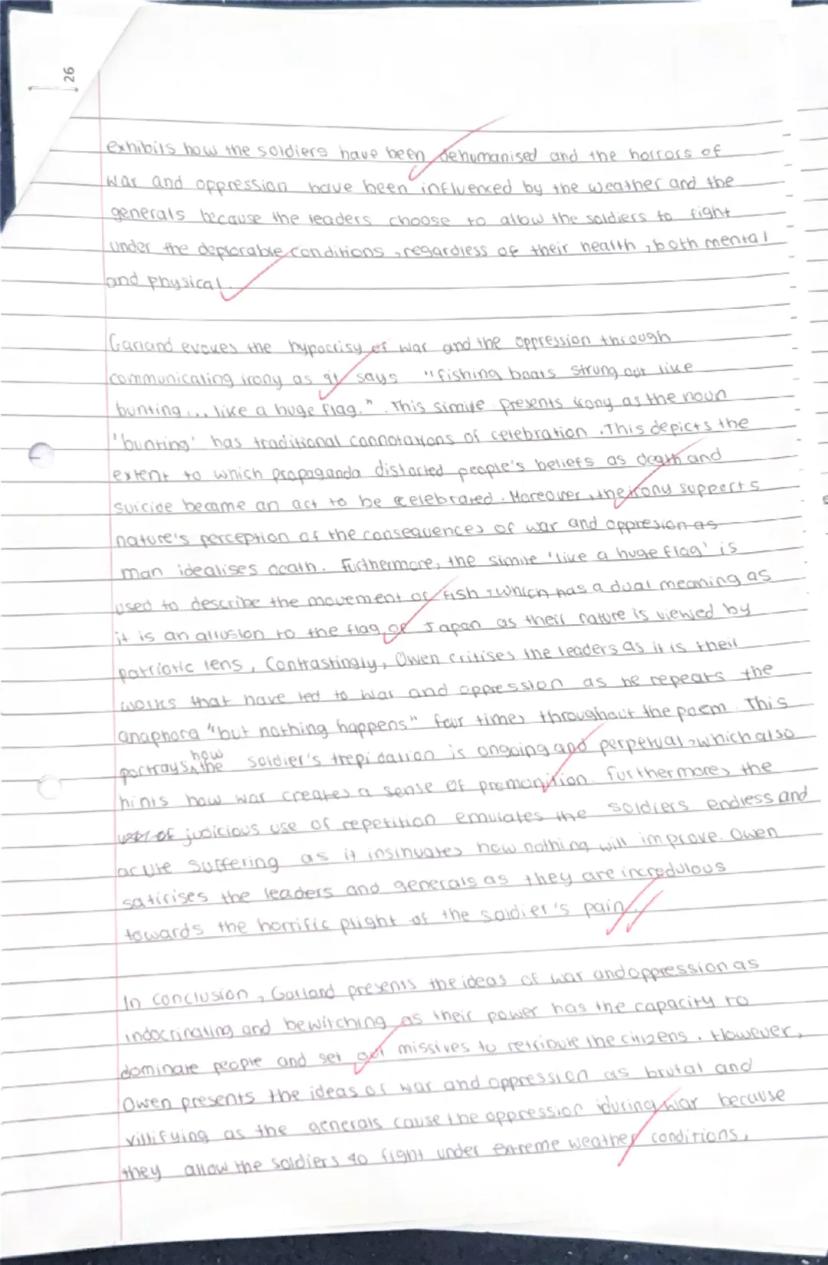 26
exhibits how the soldiers have been dehumanised and the horrors of
war and oppression have been influenced by the weather and the
generals because the leaders choose to allow the soldiers to fight
under the deplorable conditions, regardless of their health, both mental
and physical.
Garland evokes the hypocrisy of war and the oppression through
communicating irony as it says "fishing boats strung out like
bunting... like a huge flag." This simile presents irony as the noun
'bunting' has traditional connotations of celebration. This depicts the
extent to which propaganda distorted people's beliefs as death and
suicide became an act to be celebrated. Moreover, the irony supports
nature's perception of the consequences of war and oppression as
man idealises death. Furthermore, the simile 'like a huge flag' is
used to describe the movement of fish, which has a dual meaning as
it is an allusion to the flag of Japan as their nature is viewed by
patriotic lens. Contrastingly, Owen critises the leaders as it is their
works that have led to war and oppression as he repeats the
anaphora "but nothing happens" four times throughout the poem. This
portrays how the soldier's trepidation is ongoing and perpetual, which also
hints how war creates a sense of premonition. Furthermore, the
judicious use of repetition emulates the soldiers endless and
acute suffering as it insinuates how nothing will improve. Owen
satirises the leaders and generals as they are incredulous
towards the horrific plight of the soldier's pain.
In conclusion, Garland presents the ideas of war and oppression as
indocrinating and bewitching as their power has the capacity to
dominate people and set out missives to retribute the citizens. However,
Owen presents the ideas of war and oppression as brutal and
villifying as the generals cause the oppression during war because
they allow the soldiers to fight under extreme weather conditions.